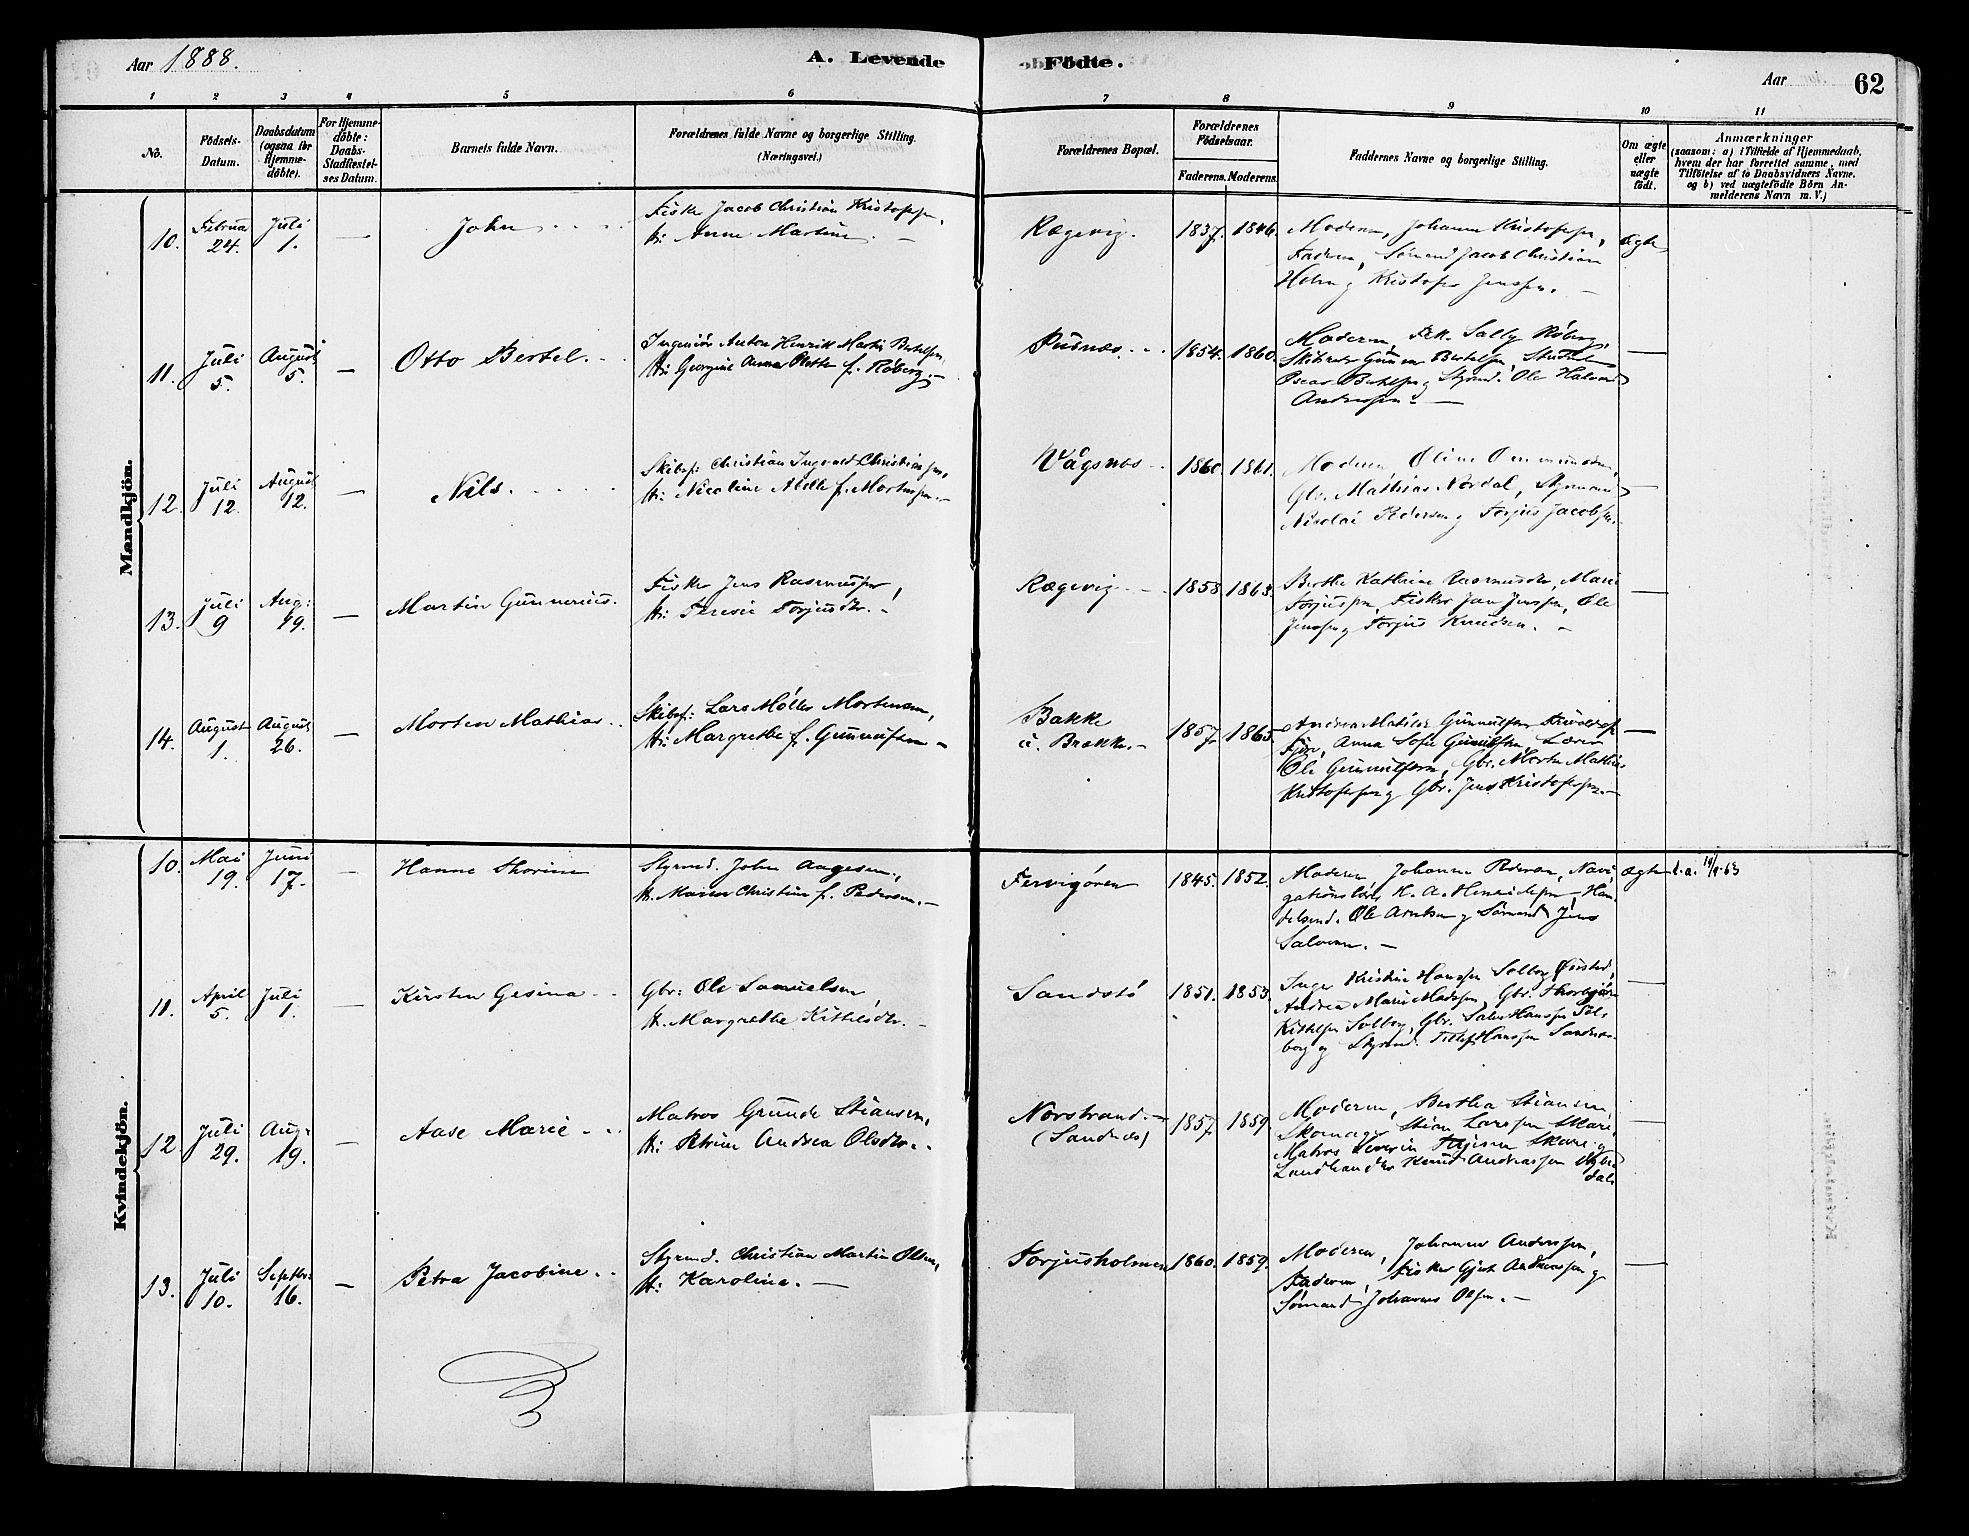 Aar 1888.
A. Levende Födte.
Aar
62
1 2 3 4 5 6 7 8 9 10 11
No.
Födsels-
Datum.
Daabsdatum
(ogsaa for
Hjemme-
döbte).
For Hjemme-
döbte:
Daabs-
Stadfæstel-
ses Datum.
Barnets fulde Navn.
Forældrenes fulde Navne og borgerlige Stilling.
(Næringsvei.)
Forældrenes Bopæl.
Forældrenes
Födselsaar.
Faderens. Moderens.
Faddernes Navne og borgerlige Stilling.
Om ægte
eller
uægte
födt.
Anmærkninger
(saasom: a) i Tilfælde af Hjemmedaab,
hvem der har forrettet samme, med
Tilföielse af to Daabsvidners Navne,
og b) ved uægtefödte Börn An-
melderens Navn m. V.)
Mandkjön.
10. Februar 24. Juli 1. — John
Fisker Jacob Christian Kristoffsen,
H: Anne Martine. —
Rægevig. 1837. 1846.
Moderen, Johanne Kristoffsen,
Faderen, Sömand Jacob Christian
Holm og Kristoffer Jenssen. —
ægte
11. Juli 5. August 5. — Otto Bertel.
Ingeniör Anton Henrik Martin Bertelsen,
H: Georgine Anna Olette f. Röberg. —
Pusnæs. 1854. 1860.
Moderen, Frk. Sally Röberg,
Gunnar Bertelsen, Student
Oscar Bertelsen og Styrmd. Ole Halvard
Andreasen. —
—
12. Juli 12. August 12. — Nils.
Skibsf: Christian Ingvald Christiansen,
H: Nicoline f. Mortensen. —
Vågsnæs 1860. 1861.
Moderen, Oline Ommundsen,
Gbr. Mathias Nordal, Styrmand
Nikolai Pedersen og Torjus Jacobsen.
—
13. Juli 9 Aug: 19. — Martin Gunnerius.
Fisker Jens Rasmussen,
H: Teresie Torjusdtr. —
Rægevig 1858. 1863.
Berthe Kathrine Rasmusdtr, Marie
Torjussen, Fisker Jan Jenssen, Ole
Jenssen og Torjus Knudsen. —
—
14. August 1. August 26. — Morten Mathias
Skibsf: Lars Möller Mortensen,
H: Margrethe f. Gunnufsen —
Bakke
u. Brække. — 1857. 1865.
Andrea Matilde Gunnufsen
Anna Sofie Gunnufsen, Lærer
Ole Gunnufsen, Gbr. Morten Mathias
Kristoffersen og Gbr. Jens Kristoffersen. —
—
Kvindekjön.
10. Mai 19. Juni 17. — Hanne Thorine
Styrmd. John Aagesen,
H. Maren Christine f. Pedersen. —
Fervigören 1845. 1852.
Moderen, Johanne Pedersen, Navi-
gationslærer H. A. Henrichsen, Han-
delsmd. Ole Arntsen og Sömand Jens
Salvesen. —
ægte d. a. 19/9-63
11. April 5. Juli 1. — Kirsten Gesina
Gbr: Ole Samuelsen
H. Margrethe Kittelsdtr. —
Sandstö 1851. 1853.
Inger Kristine Hanssen Solborg
Andrea Marie Madssen, Gbr. Thorbjörn
Kittelsen Solborg, Gbr. Salve Hanssen Sol-
borg og Styrmd. Tellef Hanssen Sandnes
—
12. Juli 29. Aug: 19. — Aase Marie
Matros Gunde Stiansen,
H: Petrine Andrea Olsdtr. —
Norstrand. —
(Sandnæs) 1857. 1859.
Moderen, Bertha Stiansen,
Skomager Stian Larssen Skare,
Matros Severin Terjesen Skare og
Landhandler Knud Andreassen
—
13. Juli 10. Septbr: 16. — Petra Jacobine
Styrmd. Christian Martin Olsen,
H: Karoline. —
Torjusholmen 1860. 1859.
Moderen, Johanne Anderssen,
Faderen, Fisker Gjert Andreassen og
Sömand Johannes Olsen. —
—